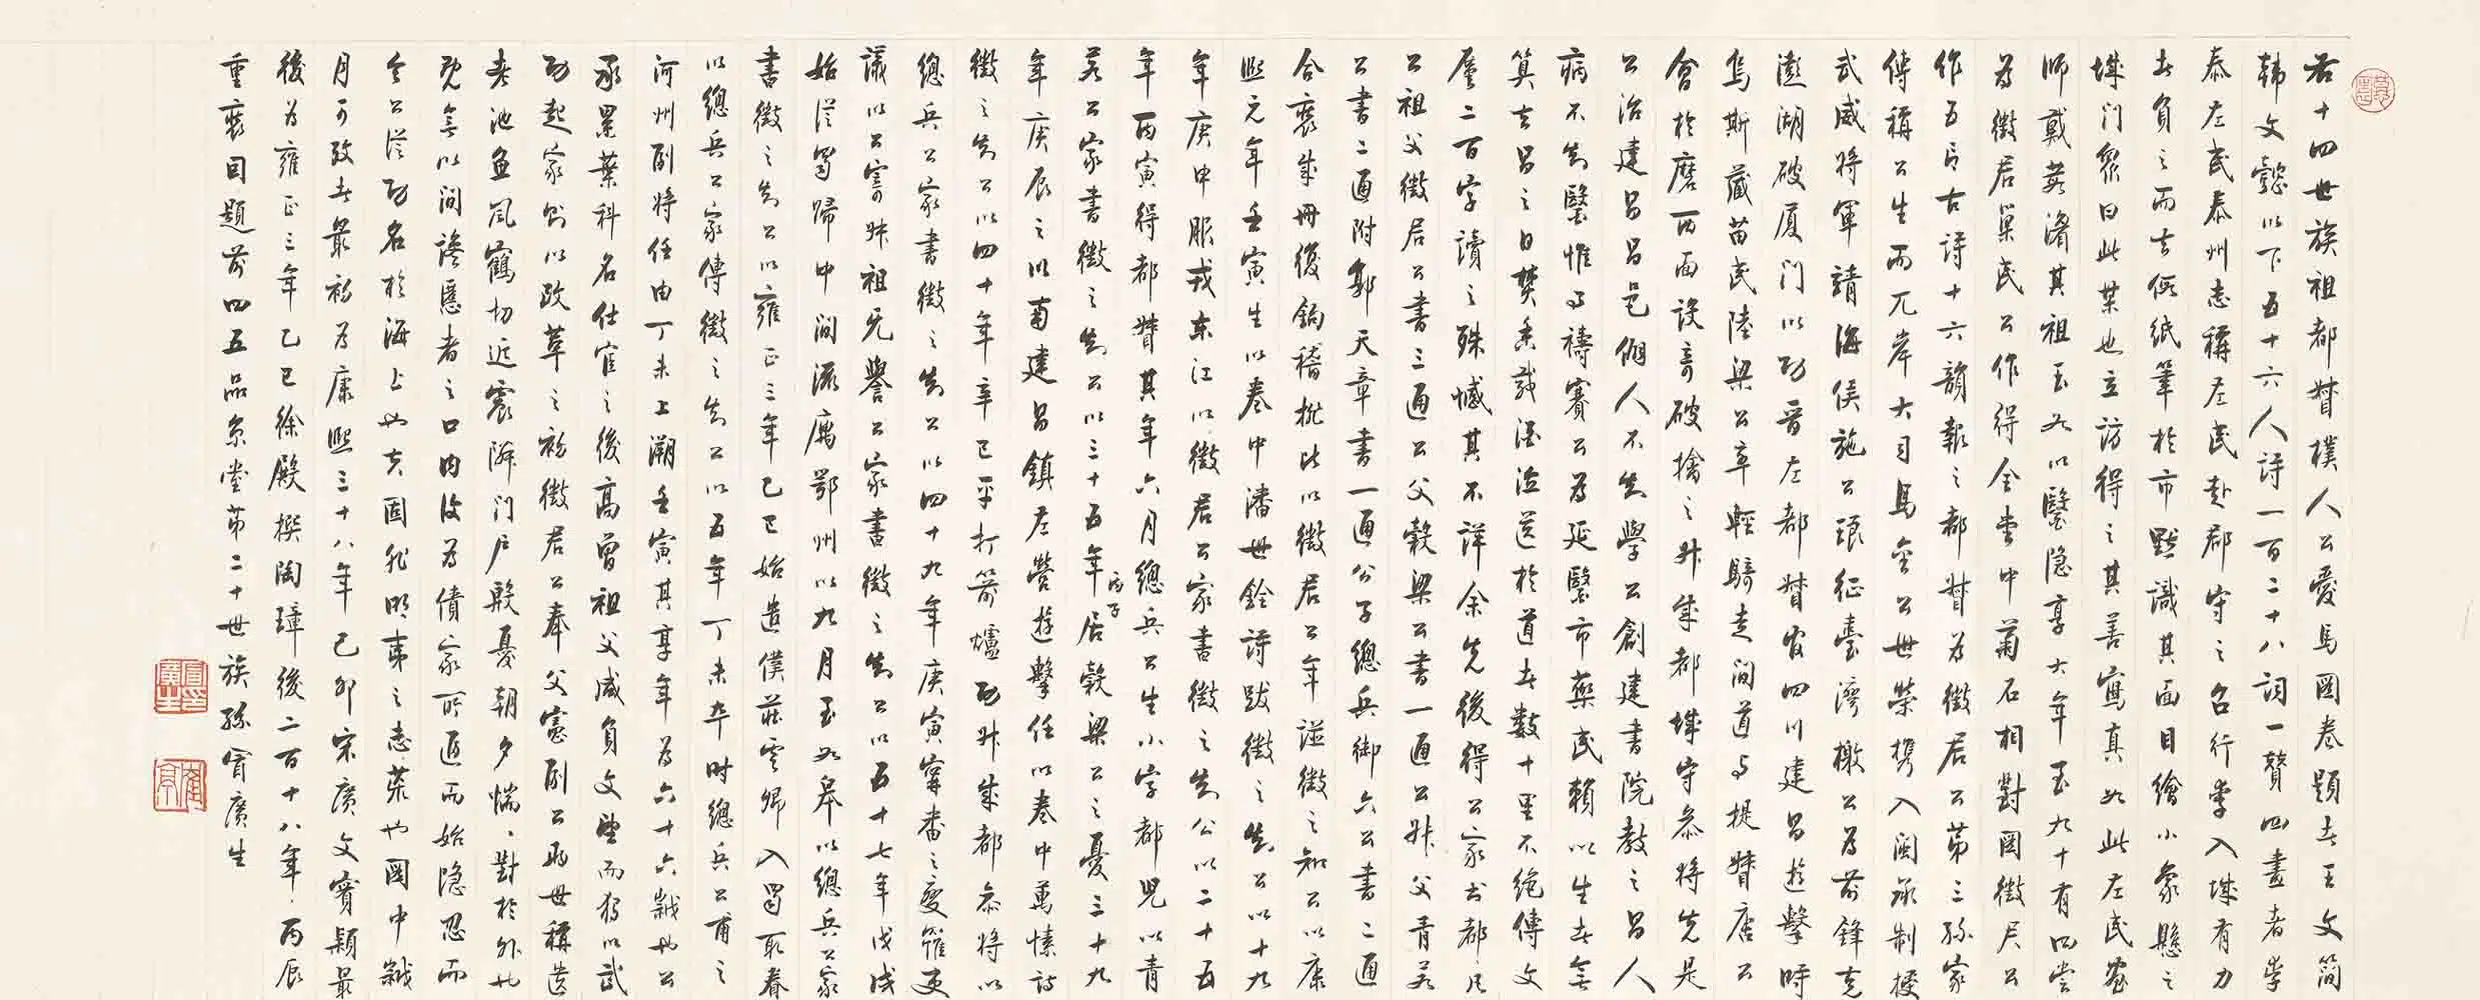 右十四世族祖都督樸人公愛馬圖卷題者王文簡
韓文懿以下五十六人詩一百二十八詞一贊四畫者李
泰左民泰州志稱左民赴郡守之召行李入城有力
者負之而去假紙筆於市默識其面目繪小象懸之
城门眾曰此某也立訪得之其善寫真如此左民畫
师戴蒼濬其祖至以醫隐享大年至九十有四嘗
為徵君巢民公作得全堂中菊石相對圖徵君公
作五言古詩十六韻報之都督為徵君公第三孫家
傳稱公生而兀岸大司馬金公世榮携入閩承制授
武威將軍靖海侯施公琅征臺灣檄公為前鋒克
澎湖破厦门以功晋左都督官四川建昌遊擊時
烏斯藏苗民陸梁公率輕騎走间道与提督唐公
會於磨西面設奇破擒之升成都城守参將先是
公治建昌昌邑僻人不知學公創建書院教之昌人
病不知醫惟事禱賽公為延醫市藥民賴以生去
算去昌之日焚香載酒泣送於道者数十里不絶傳文
厪二百字讀之殊憾其不詳余先後得公家书都凡
公祖父徵君公書三通公父榖梁公書一通公叔父青若
公書二通附郭天章書一通公子總兵御六公書二通
合裝成冊後鈎稽挩比以徵君公年證徵之知公以康
熙元年壬寅生以卷中潘世銓詩跋徵之知公以十九
年庚申服戎東江以徵君公家書徵之知公以二十五
年丙寅得都督其年六月總兵公生小字都兒以青
若公家書徵之知公以三十五年丙子居榖梁公之憂三十九
年庚辰之以南建昌鎮左營遊擊任以卷中萬愫詩
徵之知公以四十年辛巳平打箭爐功升成都参將以
總兵公家書徵之知公以四十九年庚寅寧番之變罹吏
議以公寄叔祖无譽公家書徵之知公以五十七年戊戌
始從蜀歸中间流寓鄂州以九月至如皋以總兵公家
書徵之知公以雍正三年乙巳始遣僕莊雲卿入蜀取眷
以總兵公家傳徵之知公以五年丁未卒时總兵公甫之
河州副將任由丁未上溯壬寅其享年為六十六歲也公
承累葉科名仕宦之後高曾祖父咸負文望而獨以武
功起家則以改革之初徵君公奉父憲副公兩世稱遗
老池魚風鶴切近震隣门户艱憂朝夕惴、對於外也
既無以间讒慝者之口内復為債家所迫而始隐忍而
令公從功名於海上也夫固非明夷之志業也圖中歲
月可攷者最初為康熙三十八年己卯宋廣文實穎最
後為雍正三年乙巳徐殿撰陶璋後二百十八年丙辰
重裝目題前四五品京堂第二十世族孫冒廣生